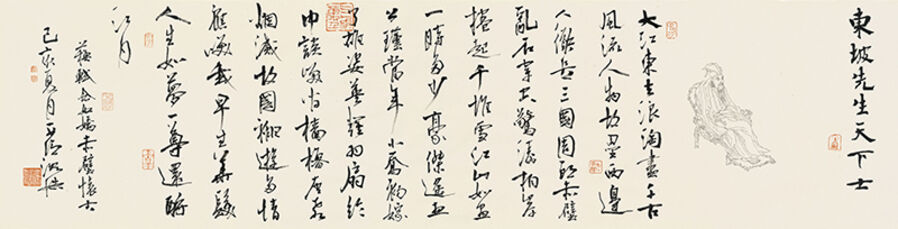 東坡先生天下士
大江東去浪淘盡千古
風流人物故壘西邊
人道是三國周郎赤壁
亂石穿空驚濤拍岸
捲起千堆雪江山如畫
一時多少豪傑遙想
公瑾當年小喬初嫁
了雄姿英發羽扇綸
巾談笑間檣櫓灰飛
煙滅故國神遊多情
應笑我早生華髮
人生如夢一尊還酹
江月
蘇軾念奴嬌赤壁懷古
己亥夏月